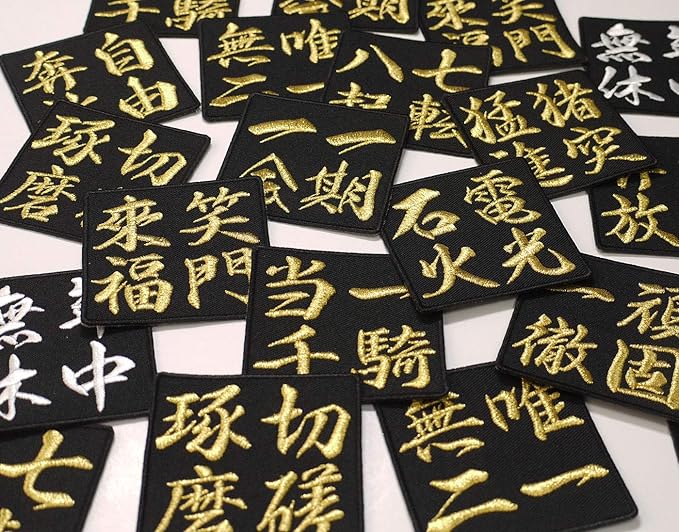 騎
千
期
笑門
來福
無休
自由
奔
唯一
無二
七転
八起
猪突
猛進
切
琢磨
一期
一会
笑門
來福
電光
石火
放
中
無休
一騎
当千
頑固
一徹
七
切磋
琢磨
唯一
無二